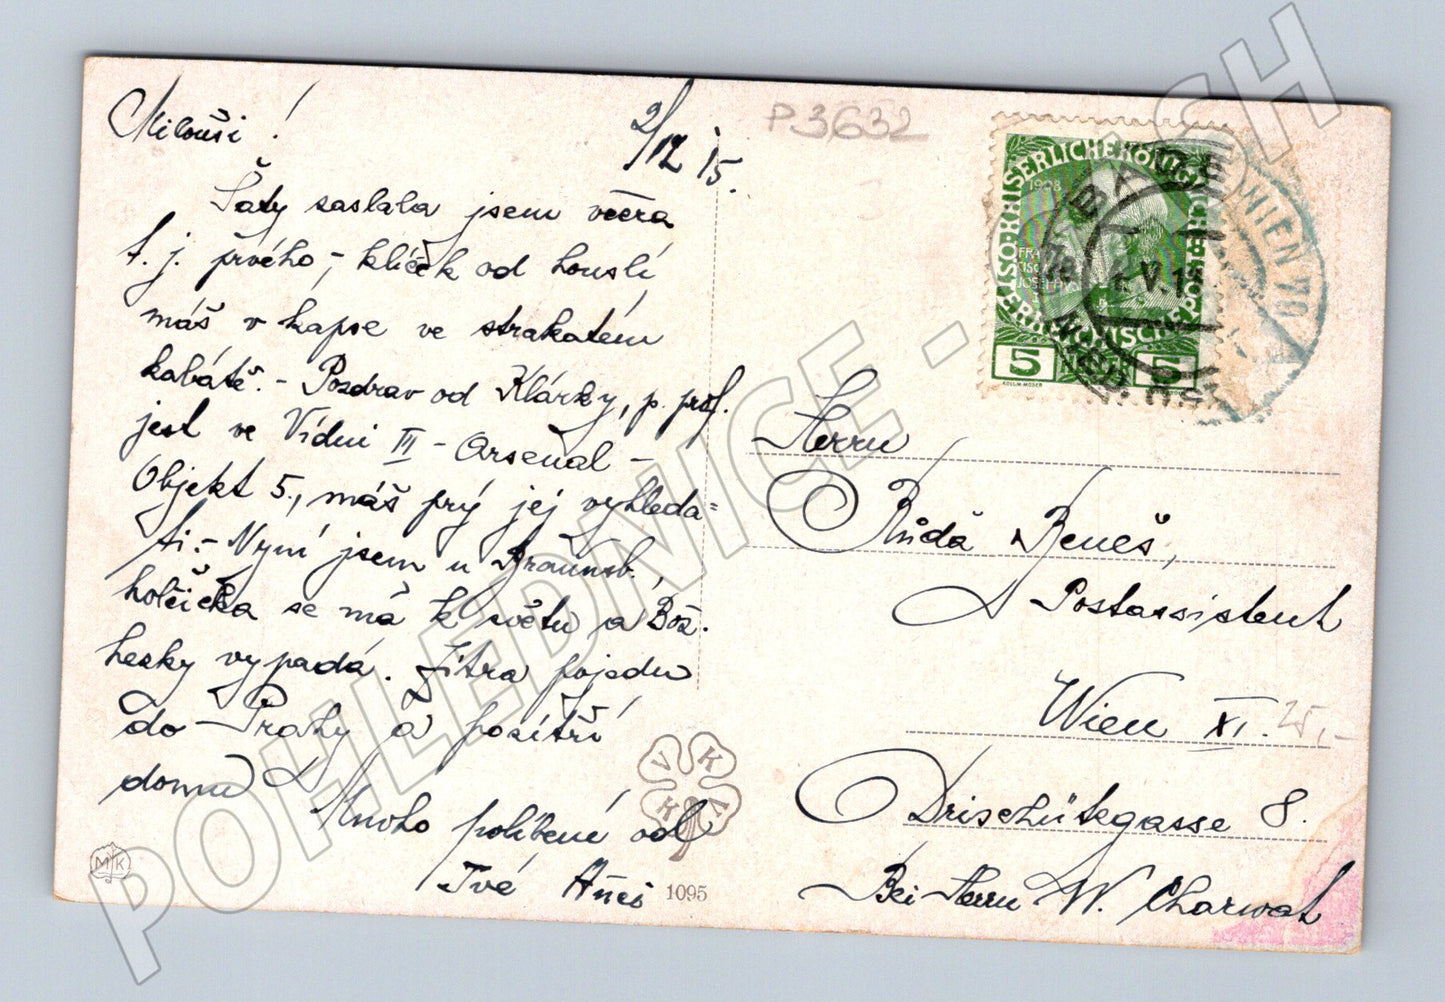 Milouši !
2/IV 15.
Šaty zaslala jsem včera
t. j. prvého, - klíček od houslí
máš v kapse ve strakatém
kabátě. - Pozdrav od Klárky, p. prof.
jest ve Vídni III - Arsenal -
Objekt 5., máš prý jej vyhleda=
ti. - Nyní jsem u Braunsb.,
holčička se má k světu a Bož.
hezky vypadá. Zítra pojedu
do Prahy a pozítří
domů
Mnoho políbení od
Tvé
P3632
KAISERLICHE KÖNIGLICHE
ÖSTERREICHISCHE POST
1908
1908
FRANZ
JOSEF I
5 5
KOLLM. MOSER
WIEN 70
Herrn
Růda Beneš,
Postassistent
Wien XI.
25,-
Drischützgasse 8.
Bei Herrn W. Charwat
V K K V
MK
1095
POHLEDNICE - SH